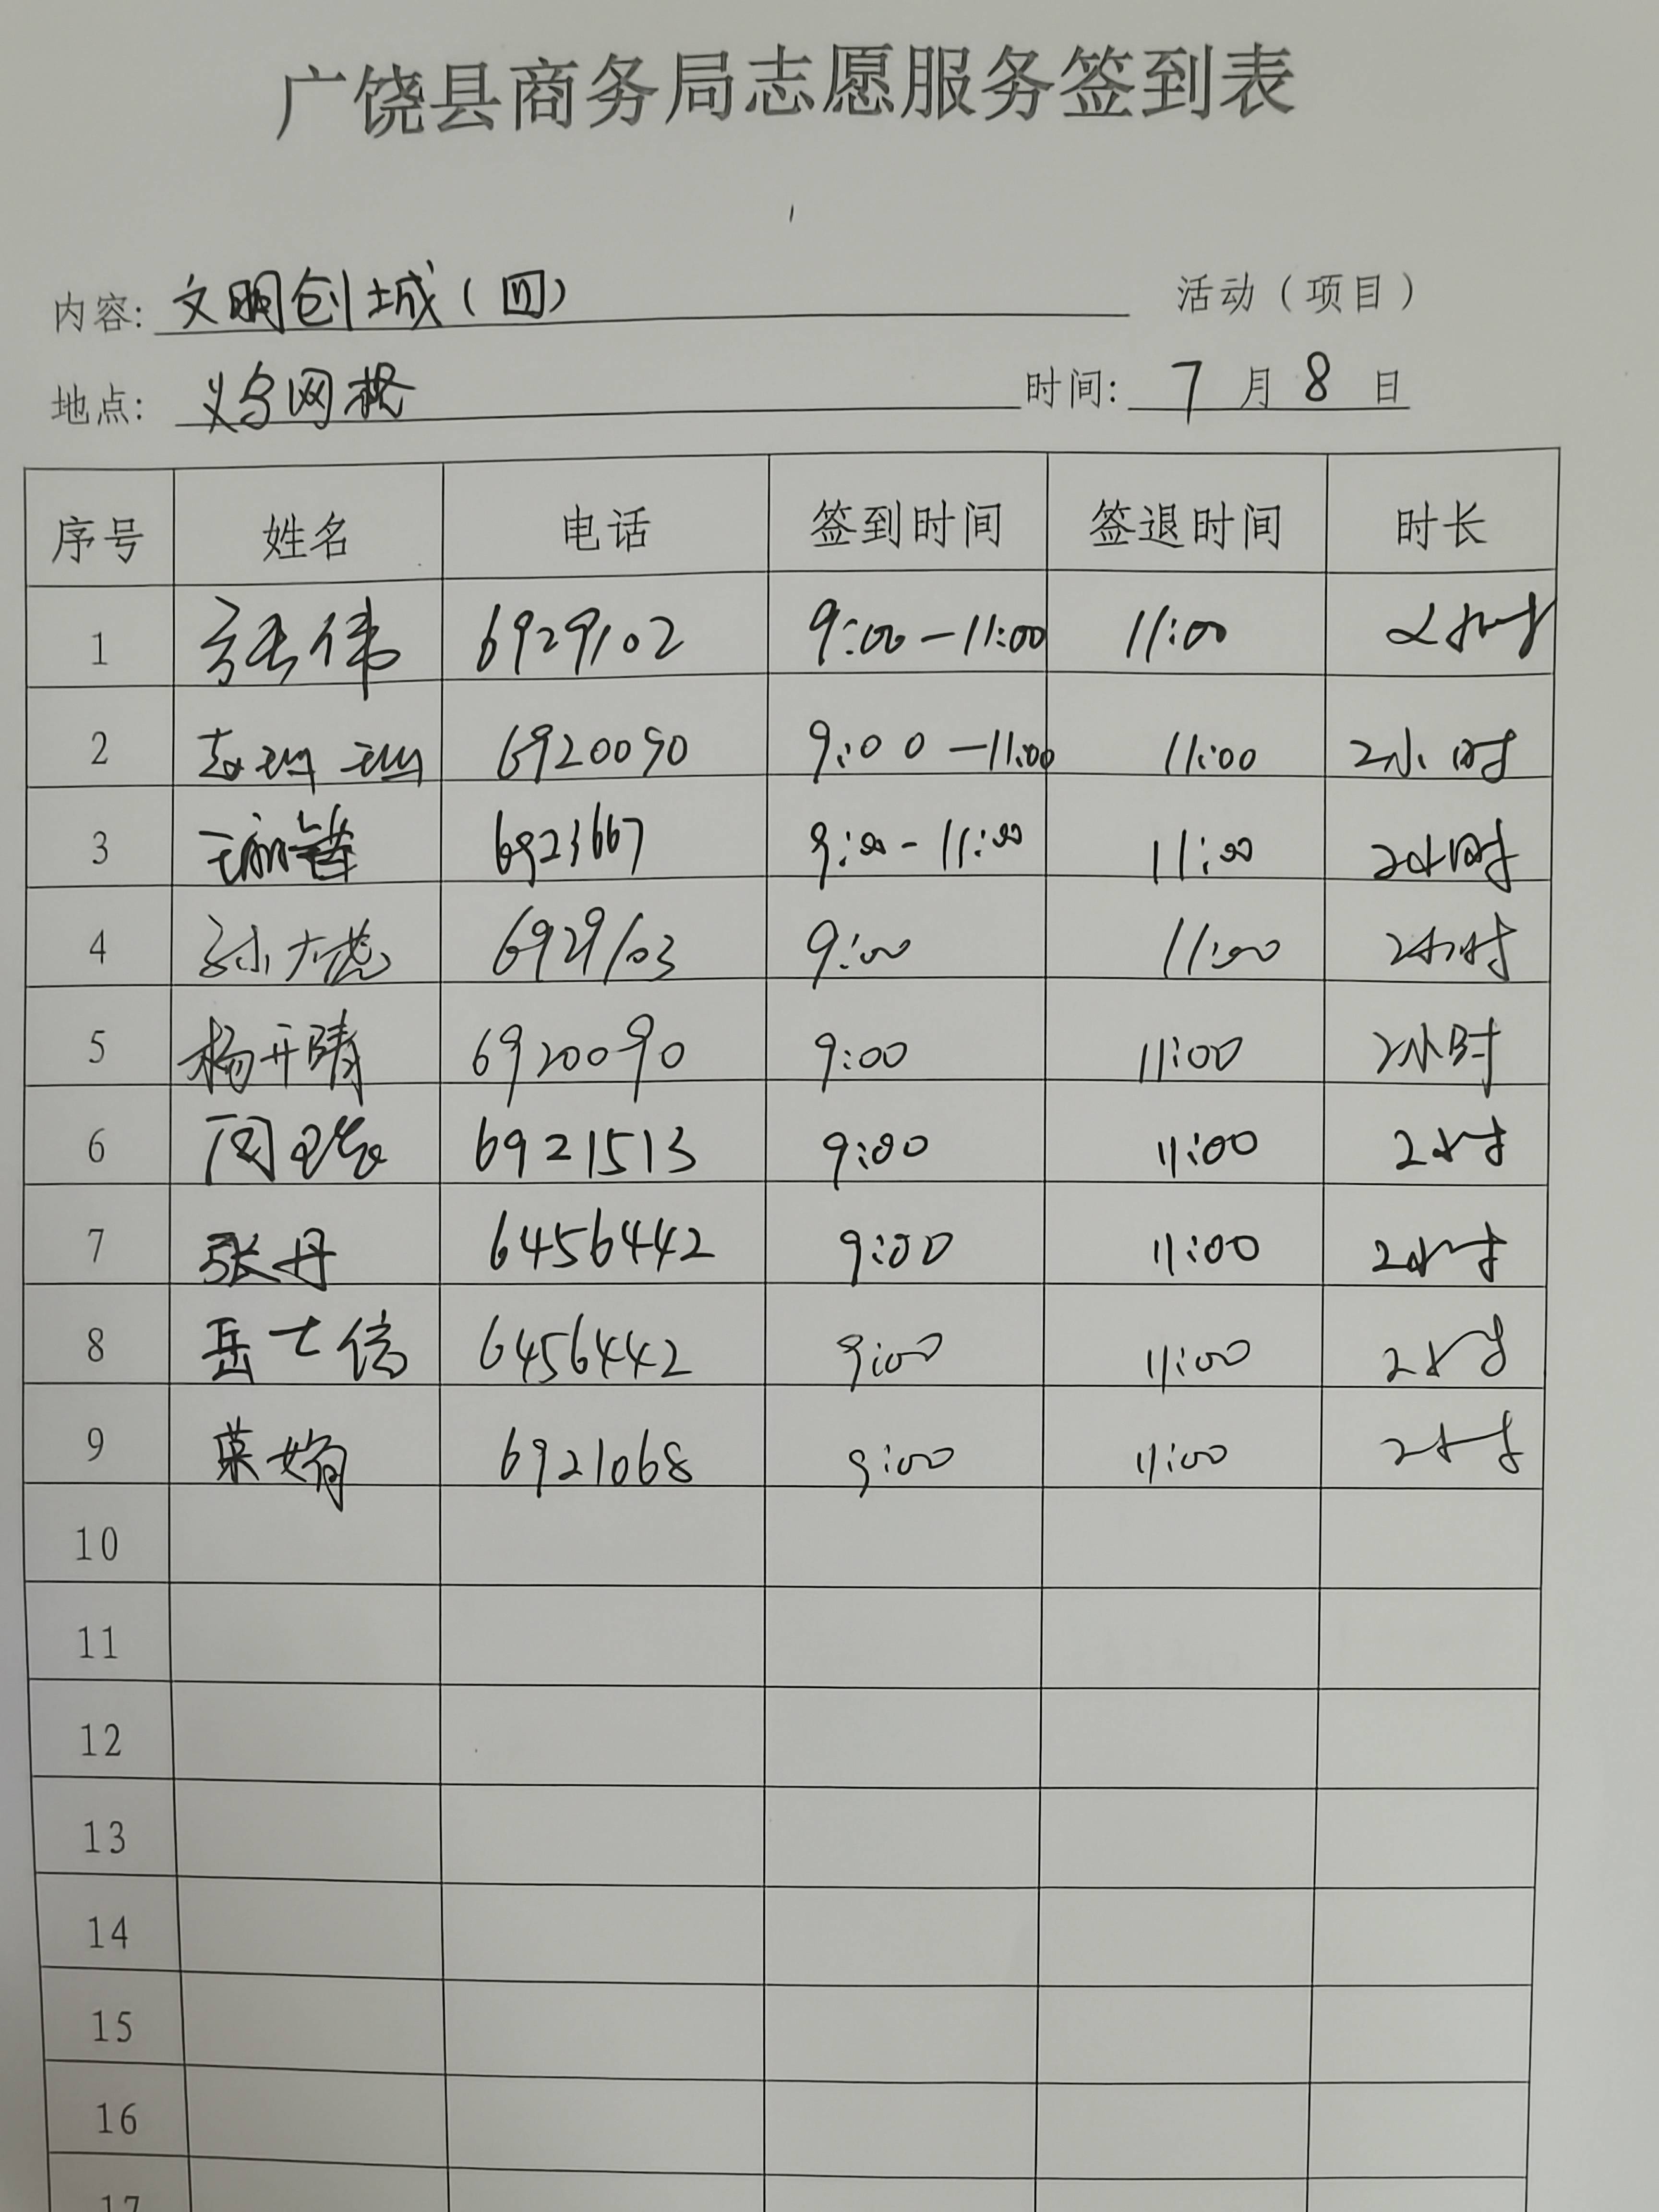 广饶县商务局志愿服务签到表
内容: 文明创城(四) 活动(项目)
地点: 义乌网格 时间: 7月8日
序号 姓名 电话 签到时间 签退时间 时长
1 张伟 6929102 9:00-11:00 11:00 2小时
2 赵珊珊 6920090 9:00-11:00 11:00 2小时
3 6923667 9:00-11:00 11:00 2小时
4 孙大 6929103 9:00 11:00 2小时
5 杨开晴 6920090 9:00 11:00 2小时
6 周 6921513 9:00 11:00 2小时
7 张丹 6456442 9:00 11:00 2小时
8 岳士信 6456442 9:00 11:00 2小时
9 6921068 9:00 11:00 2小时
10
11
12
13
14
15
16
17